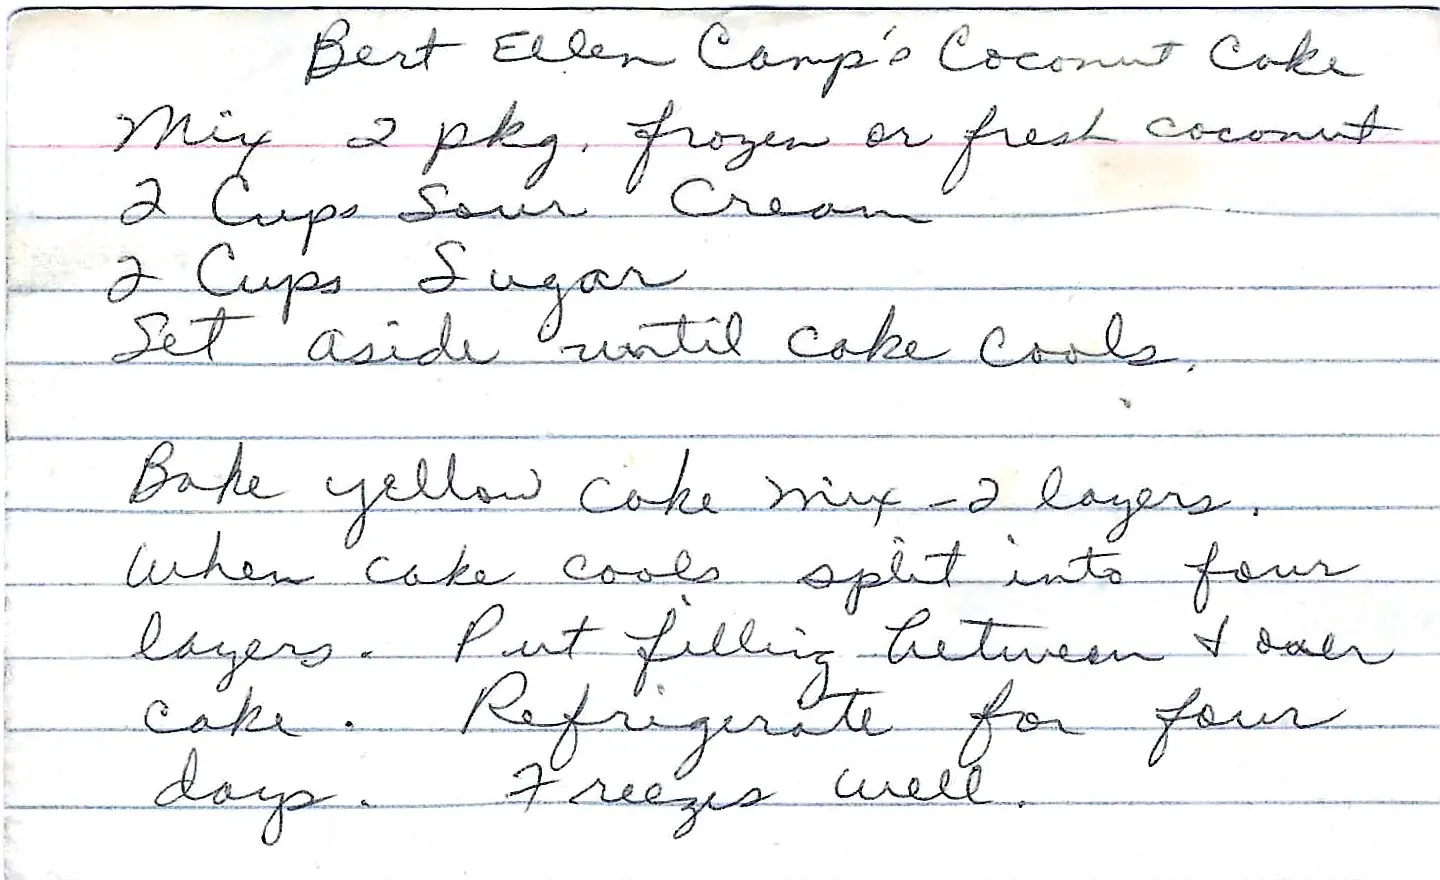 Bert Ellen Camp's Coconut Cake
Mix 2 pkg. frozen or fresh coconut
2 Cups Sour Cream
2 Cups Sugar
Set aside until cake cools.
Bake yellow cake mix - 2 layers.
When cake cools split into four
layers. Put filling between & over
cake. Refrigerate for four
days. Freezes well.